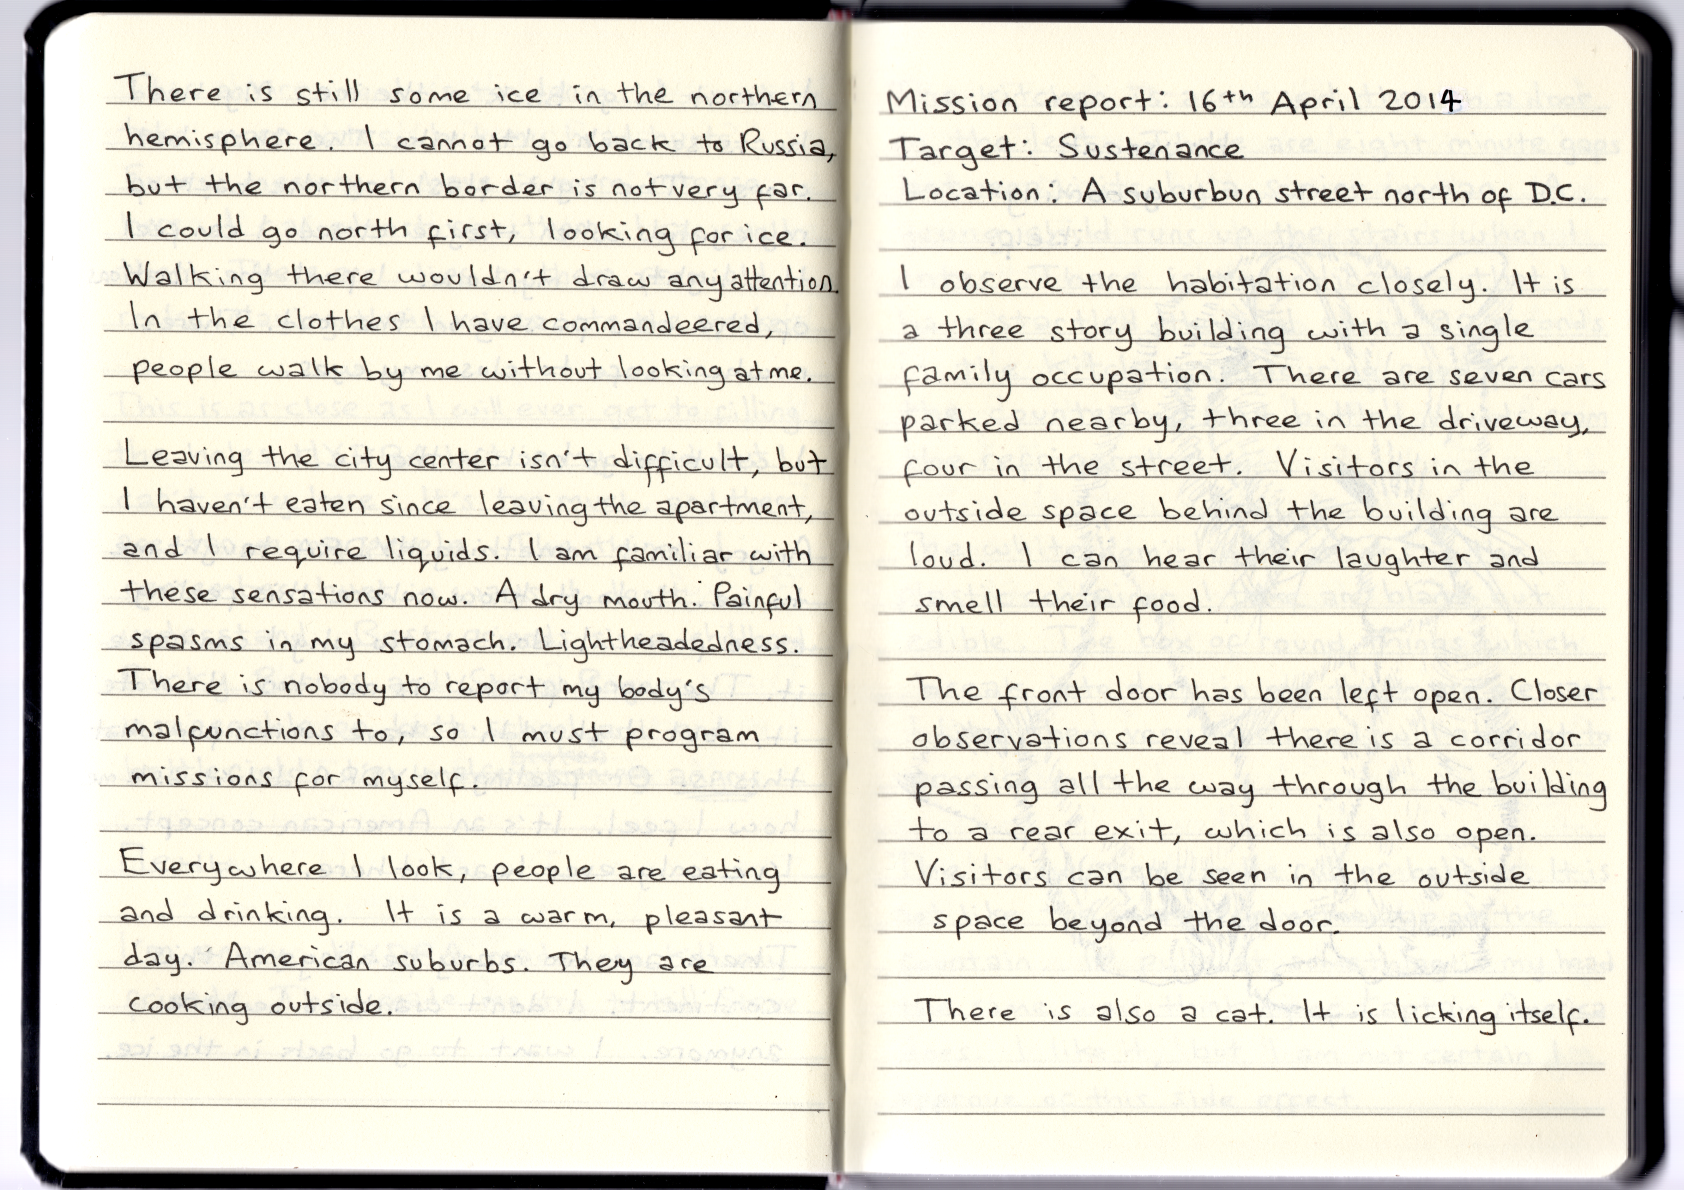 There is still some ice in the northern
hemisphere. I cannot go back to Russia,
but the northern border is not very far.
I could go north first, looking for ice.
Walking there wouldn't draw any attention.
In the clothes I have commandeered,
people walk by me without looking at me.
Leaving the city center isn't difficult, but
I haven't eaten since leaving the apartment,
and I require liquids. I am familiar with
these sensations now. A dry mouth. Painful
spasms in my stomach. Lightheadedness.
There is nobody to report my body's
malfunctions to, so I must program
missions for myself.
Everywhere I look, people are eating
and drinking. It is a warm, pleasant
day. American suburbs. They are
cooking outside.
Mission report: 16th April 2014
Target: Sustenance
Location: A suburbun street north of D.C.
I observe the habitation closely. It is
a three story building with a single
family occupation. There are seven cars
parked nearby, three in the driveway,
four in the street. Visitors in the
outside space behind the building are
loud. I can hear their laughter and
smell their food.
The front door has been left open. Closer
observations reveal there is a corridor
passing all the way through the building
to a rear exit, which is also open.
Visitors can be seen in the outside
space beyond the door.
There is also a cat. It is licking itself.